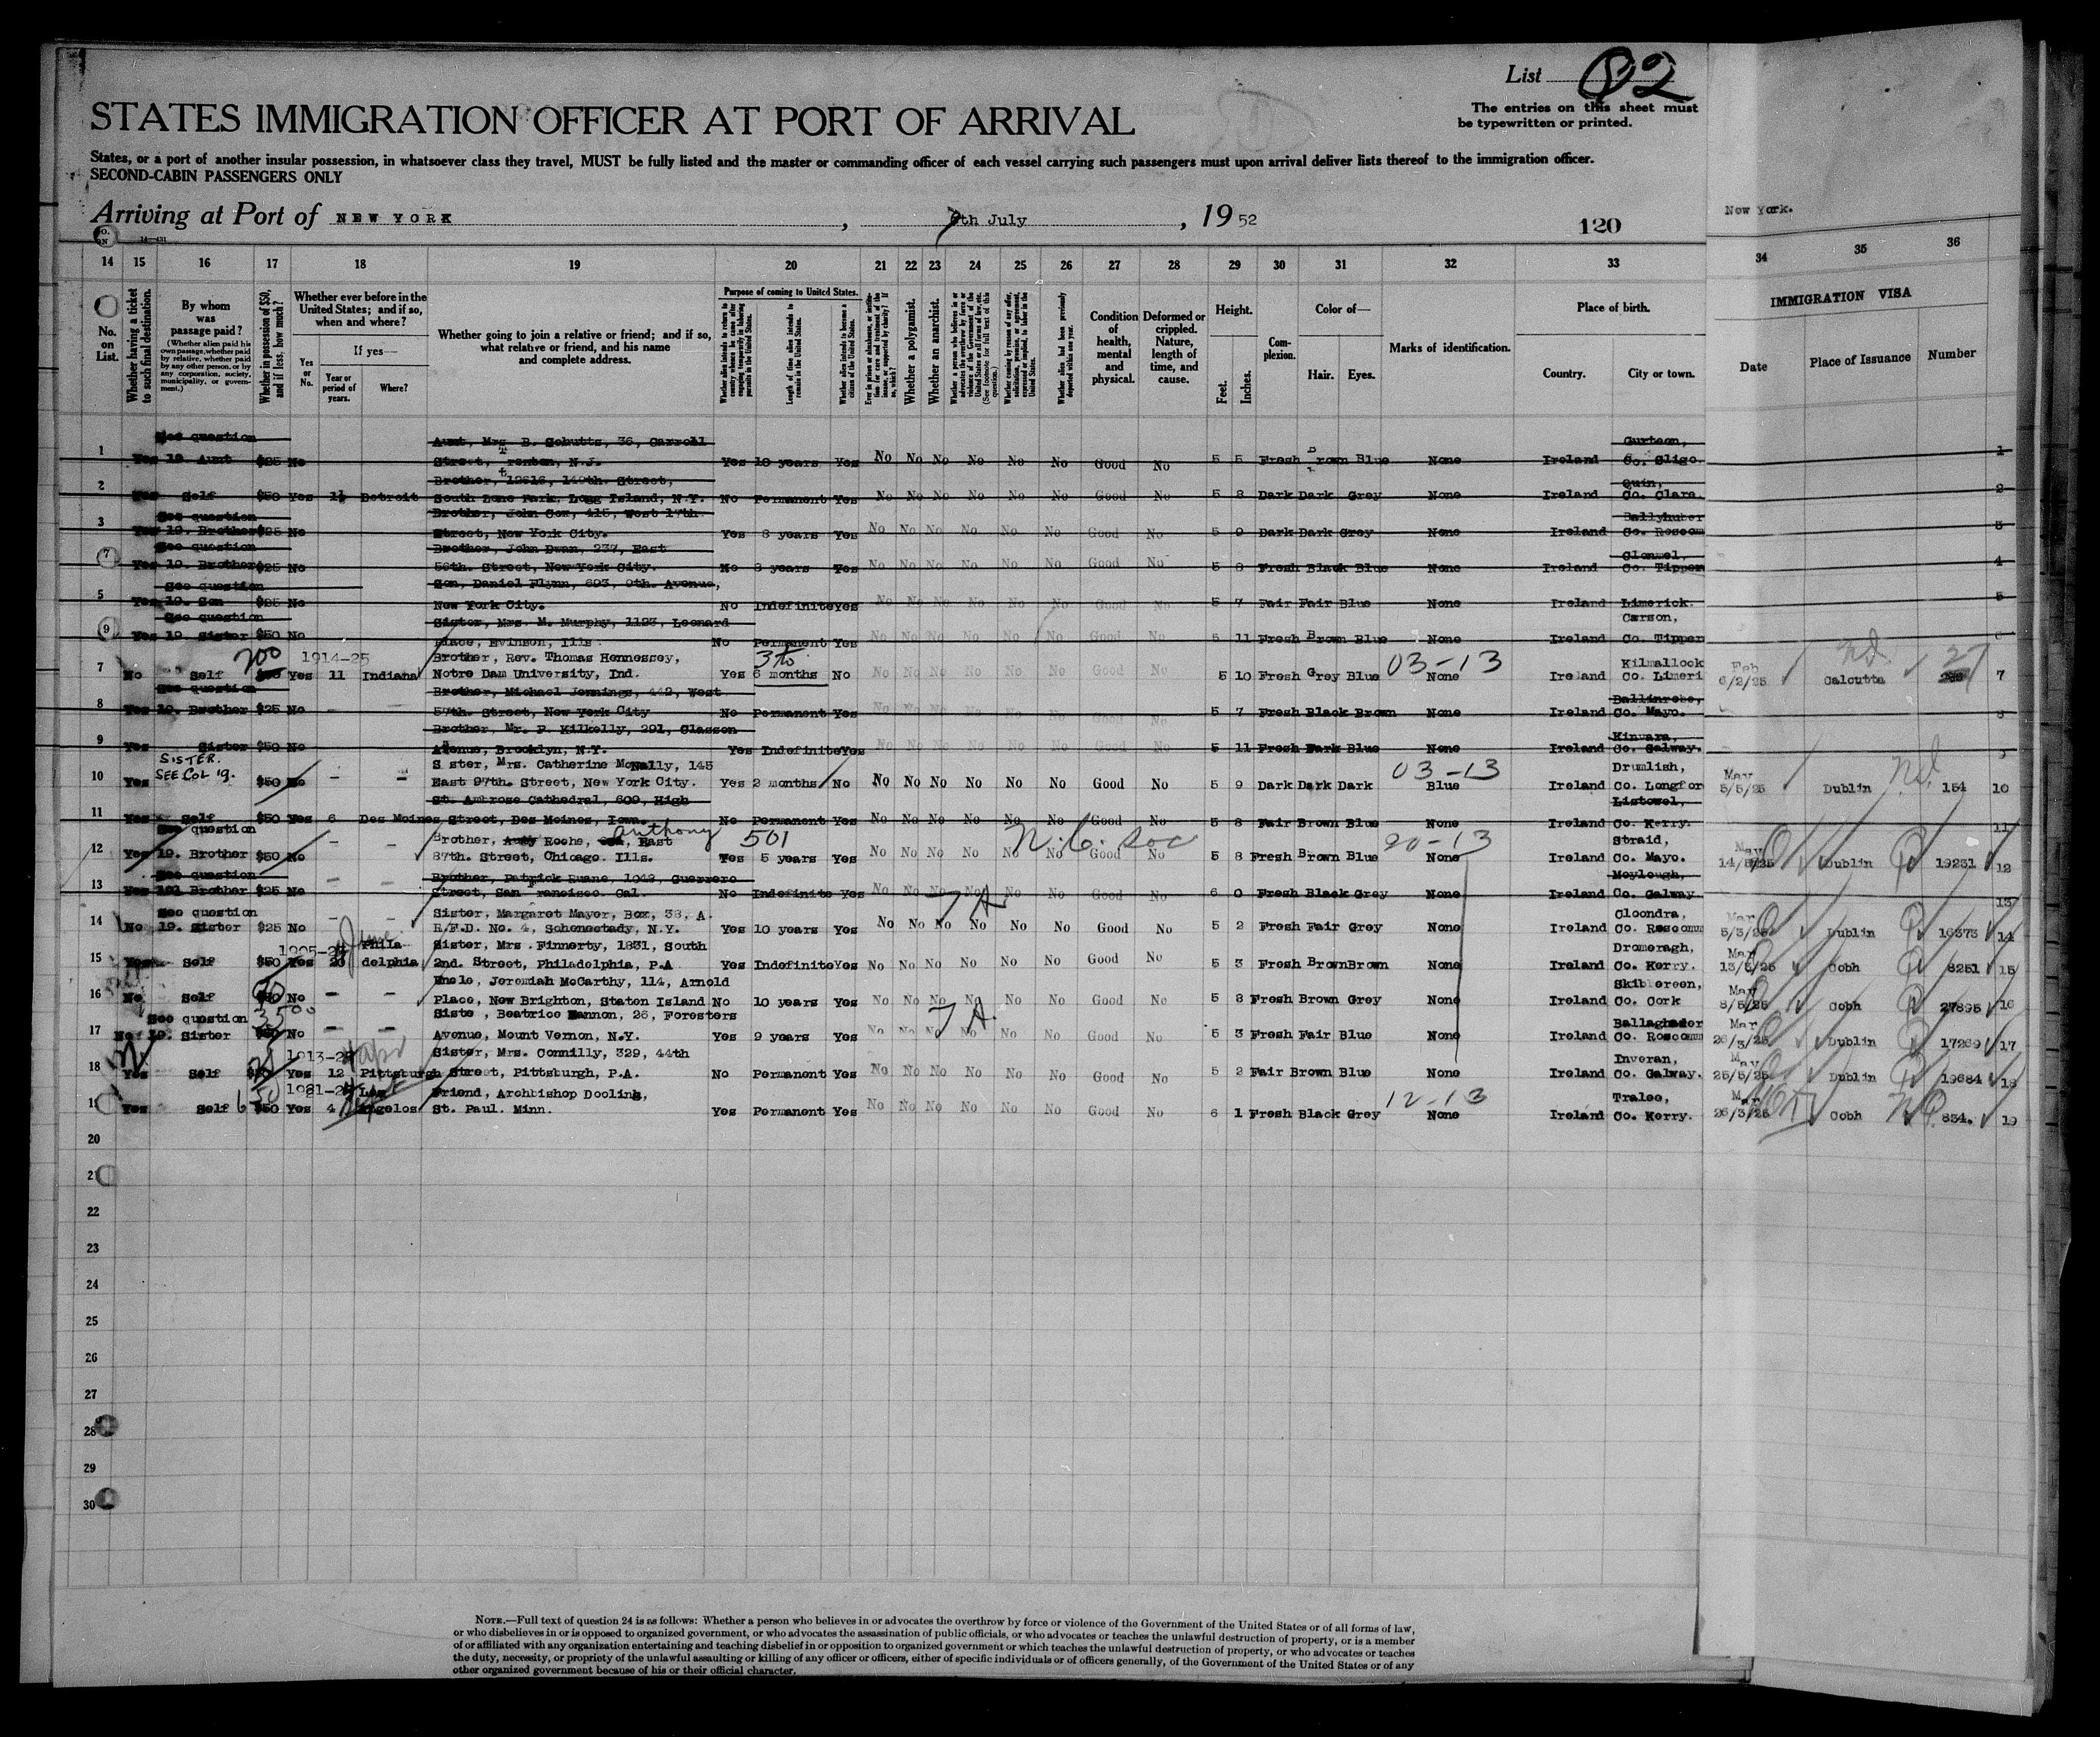 List 82
The entries on this sheet must
be typewritten or printed.
STATES IMMIGRATION OFFICER AT PORT OF ARRIVAL
States, or a port of another insular possession, in whatsoever class they travel, MUST be fully listed and the master or commanding officer of each vessel carrying such passengers must upon arrival deliver lists thereof to the immigration officer.
SECOND-CABIN PASSENGERS ONLY
Arriving at Port of NEW YORK, th July, 19 52
120
New York.
14 15 16 17 18 19 20 21 22 23 24 25 26 27 28 29 30 31 32 33 34 35 36
No. on List.
Whether having a ticket to such final destination.
By whom was passage paid?
(Whether alien paid his own passage, whether paid by relative, whether paid by any other person, or by any corporation, society, municipality, or government.)
Whether in possession of $50, and if less, how much?
Whether ever before in the United States; and if so, when and where?
Yes or No.
If yes—
Year or period of years.
Where?
Whether going to join a relative or friend; and if so, what relative or friend, and his name and complete address.
Purpose of coming to United States.
Length of time alien intends to remain in the United States.
Whether alien intends to become a citizen of the United States.
Whether a polygamist.
Whether an anarchist.
Condition of health, mental and physical.
Deformed or crippled. Nature, length of time, and cause.
Height.
Feet.
Inches.
Complexion.
Color of—
Hair.
Eyes.
Marks of identification.
Place of birth.
Country.
City or town.
IMMIGRATION VISA
Date
Place of Issuance
Number
See question Aunt, Mrs B. Schutts, 36, Carroll Gurteen,
1 Yes 19 Aunt $25 No Street, Trenton, N.J. Yes 10 years Yes No No No No No No Good No 5 5 Fresh Brown Blue None Ireland Co. Sligo. 1
Brother, 12616, 149th. Street, Quin,
2 Yes Self $50 Yes 1½ Detroit South Zone Park, Long Island, N.Y. No Permanent Yes No No No No No No Good No 5 8 Dark Dark Grey None Ireland Co. Clare. 2
See question Brother, John Cox, 415, West 17th
3 Yes 19. Brother $25 No Street, New York City. Yes 8 years Yes No No No No No No Good No 5 9 Dark Dark Grey None Ireland Co. Roscom 3
See question Brother, John Dwan, 237, East Clonmel,
Yes 19. Brother $25 No 56th. Street, New York City. No 8 years Yes No No No No No No Good No 5 8 Fresh Black Blue None Ireland Co. Tipper 4
See question Son, Daniel Flynn, 693, 9th. Avenue,
5 Yes 19. Son $25 No New York City. No Indefinite Yes No No No No No No Good No 5 7 Fair Fair Blue None Ireland Limerick. 5
See question Sister, Mrs. M. Murphy, 1123, Leonard Carson,
Yes 19. Sister $50 No Place, Evinson, Ills. No Permanent Yes No No No No No No Good No 5 11 Fresh Brown Blue None Ireland Co. Tipper 6
200 1914-25 Brother, Rev. Thomas Hennessey, 03-13 Kilmallock Feb
7 No Self Yes 11 Indiana Notre Dam University, Ind. Yes 6 months No No No No No No No Good No 5 10 Fresh Grey Blue None Ireland Co. Limeri 6/2/25 Calcutta 7
See question Brother, Michael Jennings, 442, West Ballinrobe,
8 Yes 19. Brother $25 No 57th. Street, New York City No Permanent Yes No No No No No No Good No 5 7 Fresh Black Brown None Ireland Co. Mayo. 8
Brother, Mr. P. Kilkelly, 291, Classon Kinvara,
9 Yes Sister $50 No Avenue, Brooklyn, N.Y. Yes Indefinite Yes No No No No No No Good No 5 11 Fresh Dark Blue None Ireland Co. Galway. 9
SISTER. SEE COL 19. Sister, Mrs. Catherine McNally, 145 03-13 Drumlish, May
10 Yes $50 No - - East 97th. Street, New York City. Yes 2 months No No No No No No No Good No 5 9 Dark Dark Dark Blue Ireland Co. Longfor 5/5/25 Dublin 154 10
St. Ambrose Cathedral, 609, High Listowel,
11 Yes Self $50 Yes 6 Des Moines Street, Des Moines, Iowa. No Permanent Yes No No No No No No Good No 5 8 Fair Brown Blue None Ireland Co. Kerry. 11
See question Brother, Anthony Roche, East 501 Straid, May
12 Yes 19. Brother $50 No 87th. Street, Chicago. Ills. Yes 5 years Yes No No No No No No Good No 5 8 Fresh Brown Blue None Ireland Co. Mayo. 14/5/25 Dublin 19231 12
See question Brother, Patrick Ruane, 1042, Guerrero Moylough,
13 Yes 19. Brother $25 No Street, San Francisco. Cal. No Indefinite Yes No No No No No No Good No 6 0 Fresh Black Grey None Ireland Co. Galway 13
See question Sister, Margaret Mayer, Box, 38, A. Cloondra, Mar
14 No 19. Sister $25 No R.F.D. No. 4, Schenestady, N.Y. Yes 10 years Yes No No No No No No Good No 5 2 Fresh Fair Grey None Ireland Co. Roscomm 5/3/25 Dublin 16373 14
1905-25 Phila Sister, Mrs. Finnerty, 1831, South Dromeragh,
15 Yes Self $50 Yes 20 delphia 2nd. Street, Philadelphia, P.A Yes Indefinite Yes No No No No No No Good No 5 3 Fresh Brown Brown None Ireland Co. Kerry. Cobh 8251 15
Uncle, Jeremiah McCarthy, 114, Arnold Skibbereen, May
16 No Self $50 No - - Place, New Brighton, Staten Island No 10 years Yes No No No No No No Good No 5 8 Fresh Brown Grey None Ireland Co. Cork 8/5/25 Cobh 27895 16
See question Siste , Beatrice Hannon, 26, Foresters Ballaghader Mar
17 No 19. Sister No - - Avenue, Mount Vernon, N.Y. Yes 9 years Yes No No No No No No Good No 5 3 Fresh Fair Blue None Ireland Co. Roscomm 26/3/25 Dublin 17289 17
1913-25 Sister, Mrs. Connilly, 329, 44th Inveran, May
18 Yes Self Yes 12 Pittsburgh Street, Pittsburgh, P.A. No Permanent Yes No No No No No No Good No 5 2 Fair Brown Blue None Ireland Co. Galway. 25/5/25 Dublin 19684 18
1921-25 Los Friend, Archbishop Dooling, 12-13 Tralee, Mar
19 Yes Self $50 Yes 4 Angelos St. Paul. Minn. Yes Permanent Yes No No No No No No Good No 6 1 Fresh Black Grey None Ireland Co. Kerry. 26/3/25 Cobh 854. 19
20
21
22
23
24
25
26
27
28
29
30
NOTE.—Full text of question 24 is as follows: Whether a person who believes in or advocates the overthrow by force or violence of the Government of the United States or of all forms of law,
or who disbelieves in or is opposed to organized government, or who advocates the assassination of public officials, or who advocates or teaches the unlawful destruction of property, or is a member
of or affiliated with any organization entertaining and teaching disbelief in or opposition to organized government or which teaches the unlawful destruction of property, or who advocates or teaches
the duty, necessity, or propriety of the unlawful assaulting or killing of any officer or officers, either of specific individuals or of officers generally, of the Government of the United States or of any
other organized government because of his or their official character.